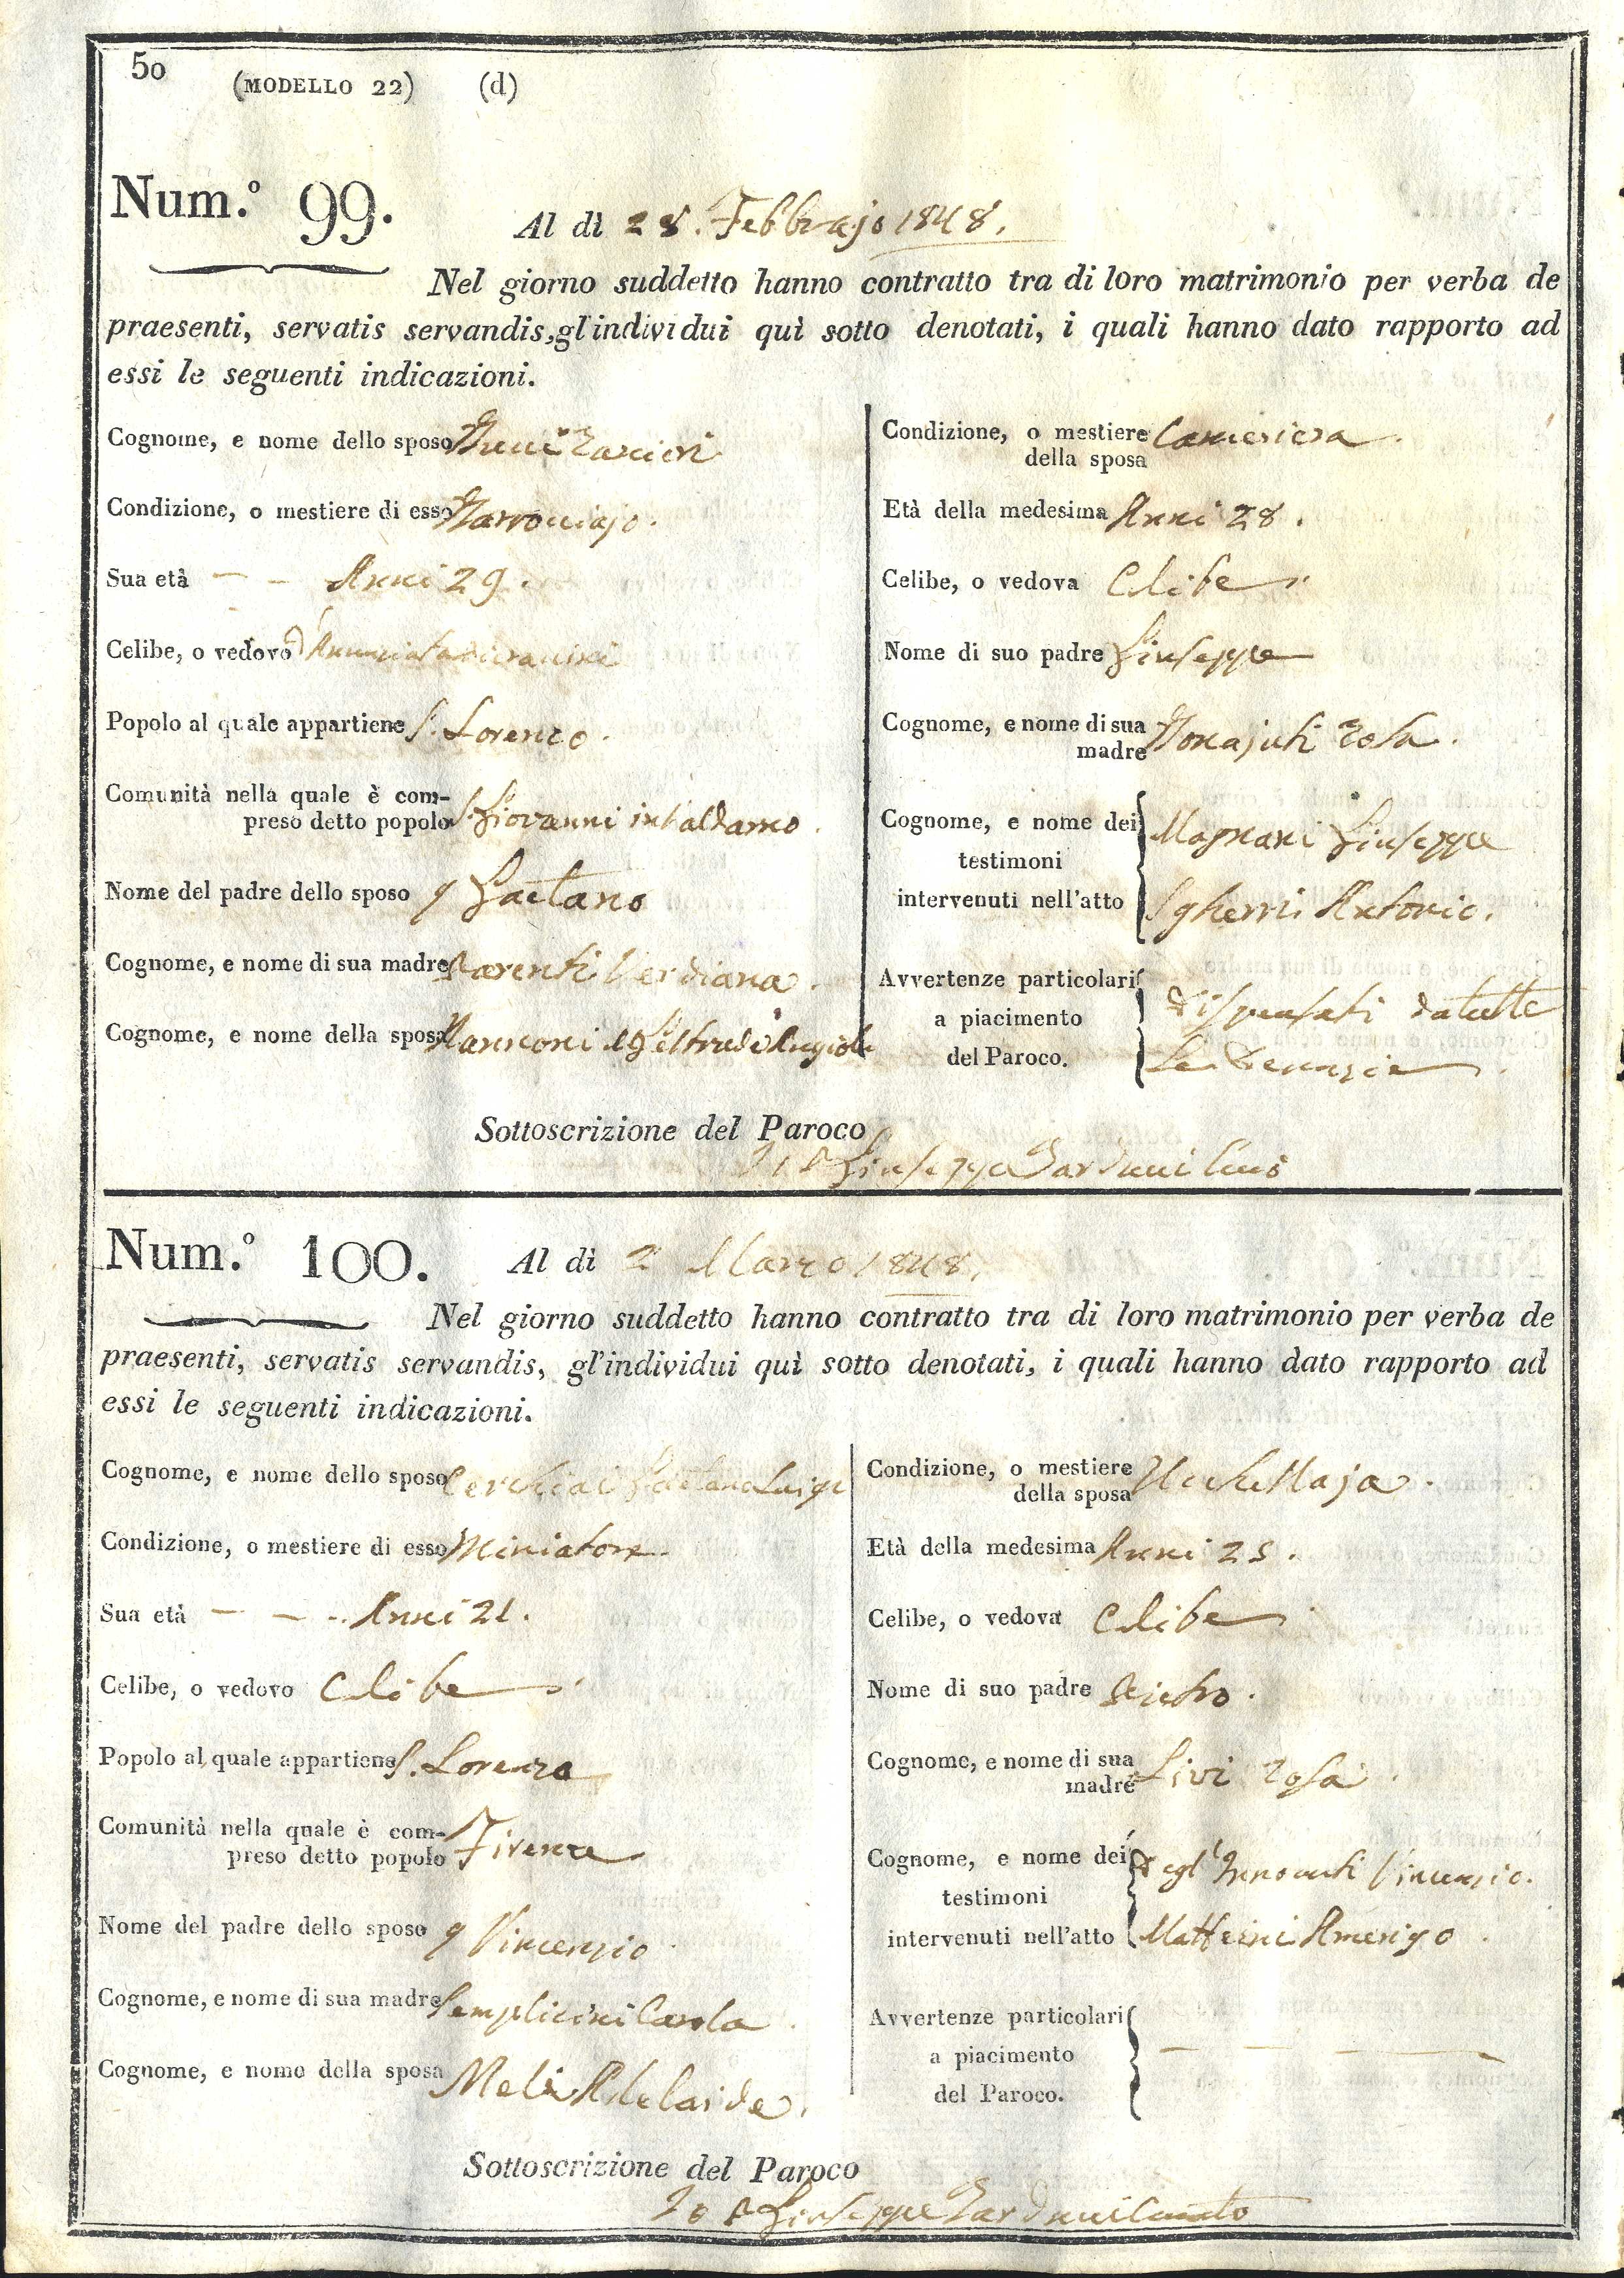 50
(MODELLO 22) (d)
Num.º 99.
Al dì 28. Febbrajo 1848.
Nel giorno suddetto hanno contratto tra di loro matrimonio per verba de
praesenti, servatis servandis, gl'individui quì sotto denotati, i quali hanno dato rapporto ad
essi le seguenti indicazioni.
Cognome, e nome dello sposo
Condizione, o mestiere di esso Barrocciajo.
Sua età - - Anni 29.
Celibe, o vedovo
Popolo al quale appartiene S. Lorenzo.
Comunità nella quale è com-
preso detto popolo S. Giovanni in Valdarno.
Nome del padre dello sposo q Gaetano
Cognome, e nome di sua madre Parenti Verdiana.
Cognome, e nome della sposa
Condizione, o mestiere Cameriera.
della sposa
Età della medesima Anni 28.
Celibe, o vedova Clibe
Nome di suo padre Giuseppe
Cognome, e nome di sua
madre Bonajuti Rosa.
Cognome, e nome dei Magnani Giuseppe
testimoni
intervenuti nell'atto Sgherri Antonio.
Avvertenze particolari
a piacimento dispensati da tutte
del Paroco. Le denunzie
Sottoscrizione del Paroco
Io P Giuseppe
Num.º 100.
Al dì 2 Marzo 1848.
Nel giorno suddetto hanno contratto tra di loro matrimonio per verba de
praesenti, servatis servandis, gl'individui quì sotto denotati, i quali hanno dato rapporto ad
essi le seguenti indicazioni.
Cognome, e nome dello sposo Cerchiai Gaetano Luigi
Condizione, o mestiere di esso Miniatore.
Sua età - - - Anni 21.
Celibe, o vedovo Clibe
Popolo al quale appartiene S. Lorenzo
Comunità nella quale è com-
preso detto popolo Firenze
Nome del padre dello sposo q Vincenzio
Cognome, e nome di sua madre Semplicini Carola.
Cognome, e nome della sposa Meli Adelaide.
Condizione, o mestiere
della sposa
Età della medesima Anni 25.
Celibe, o vedova Clibe
Nome di suo padre Pietro.
Cognome, e nome di sua
madre Livi Rosa.
Cognome, e nome dei Degl'Innocenti Vincenzio.
testimoni
intervenuti nell'atto Matteini Amerigo.
Avvertenze particolari
a piacimento - - - -
del Paroco.
Sottoscrizione del Paroco
Io P Giuseppe